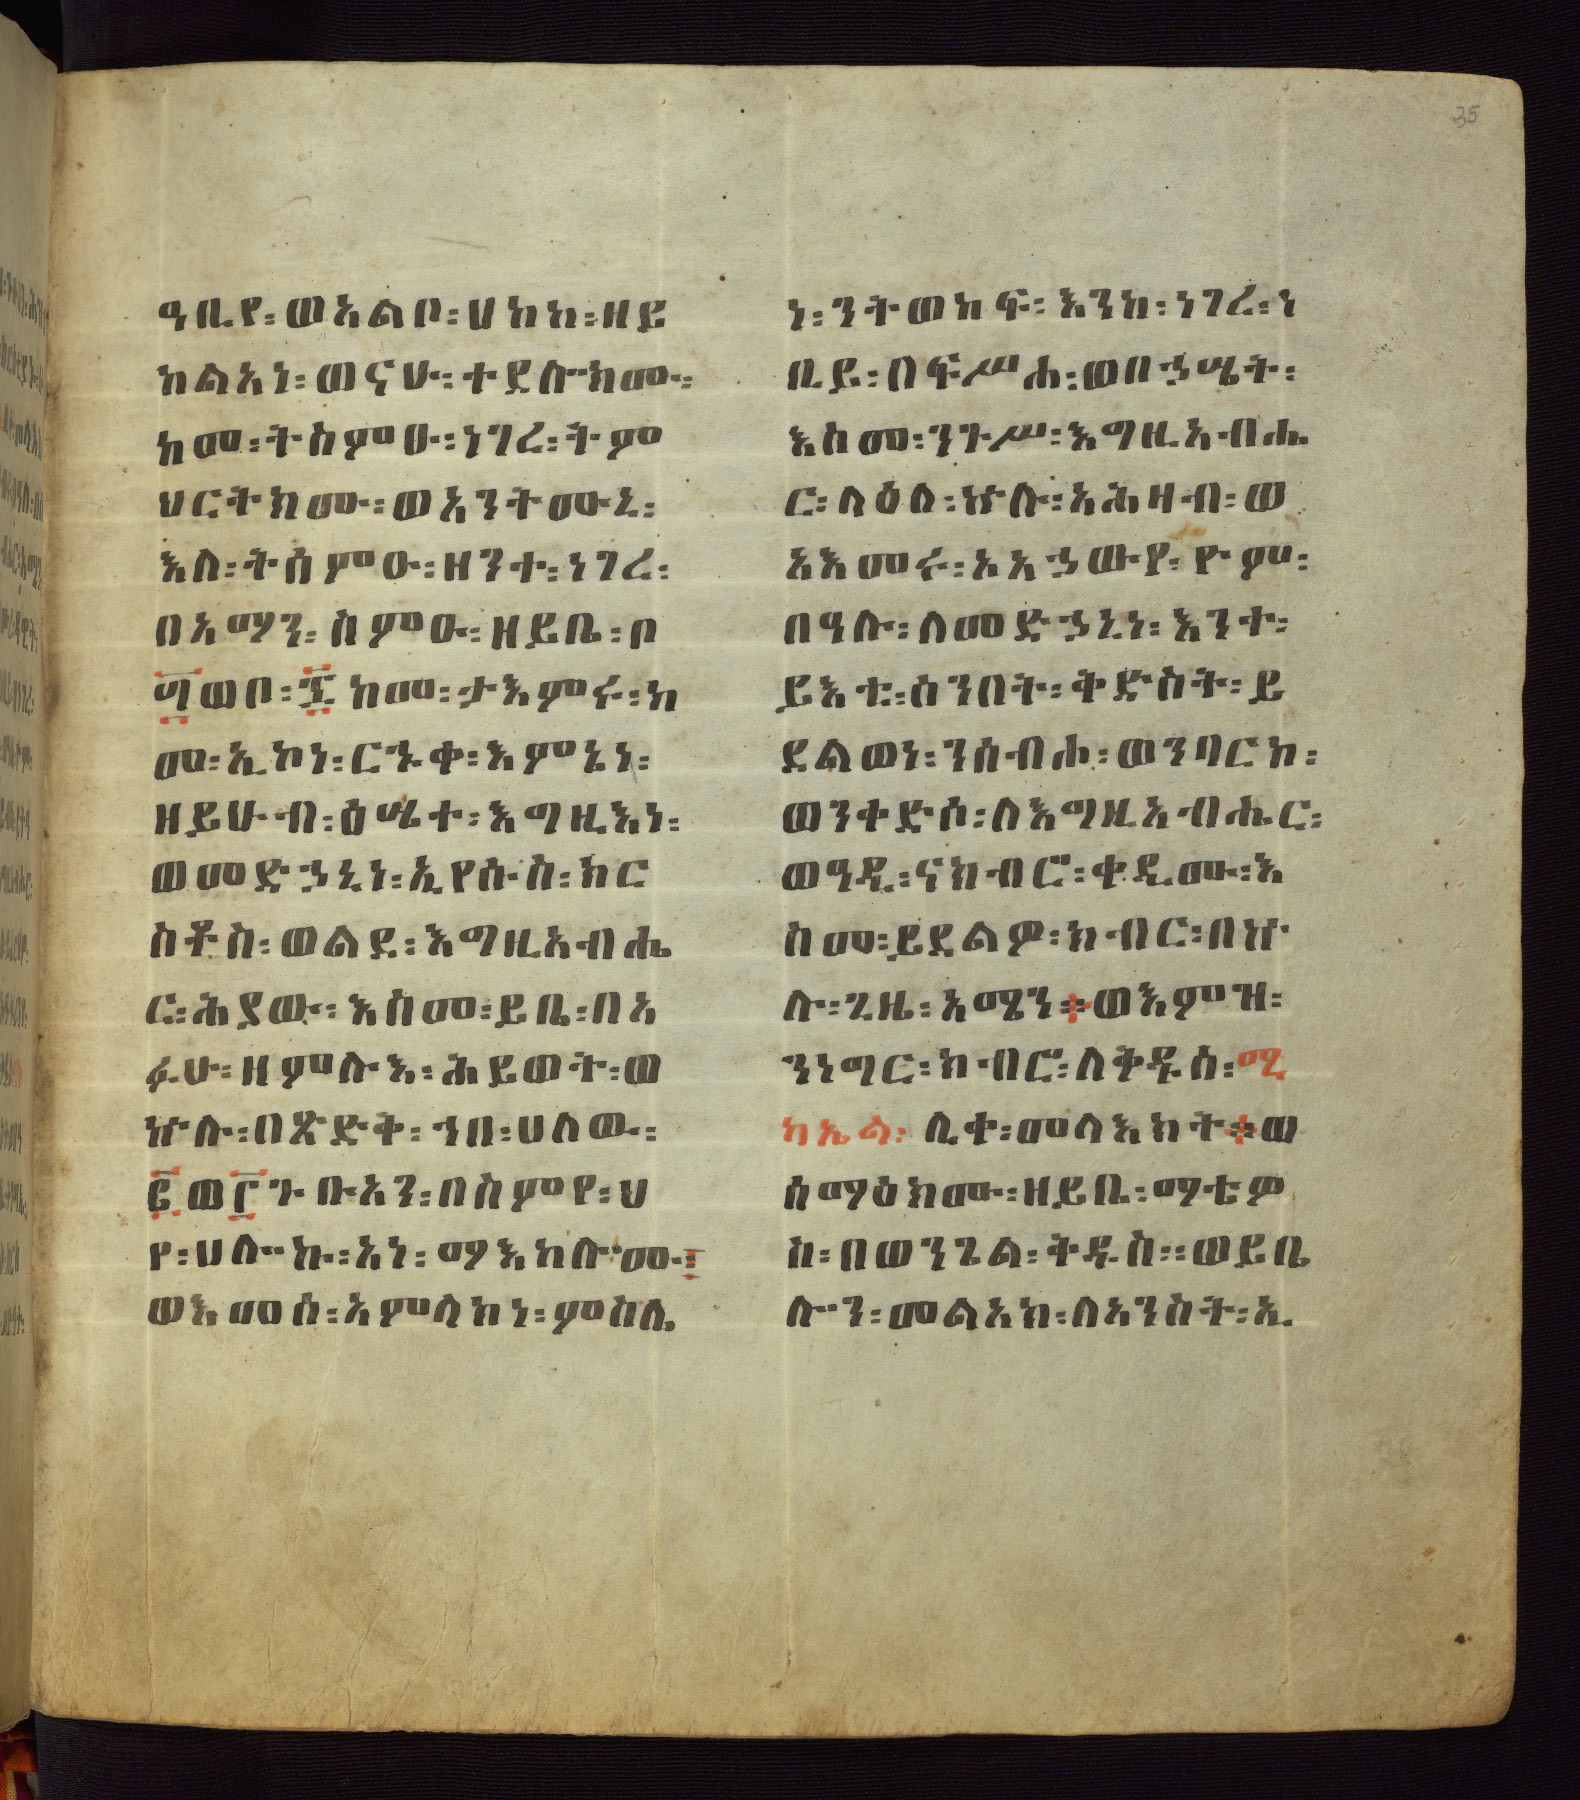 35
ዓቢየ፡ወአልቦ፡ሀከከ፡ዘይ
ከልአነ፡ወናሁ፡ተደሉክሙ፡
ከመ፡ትስምዑ፡ነገረ፡ትም
ህርትክሙ፡ወአንትሙኒ፡
እለ፡ትሰምዑ፡ዘንተ፡ነገረ፡
በአማን፡ስምዑ፡ዘይቤ፡ቦ
፻ወቦ፡፷ከመ፡ታእምሩ፡ከ
መ፡ኢኮነ፡ርኁቀ፡እምኔነ፡
ዘይሁብ፡ዕሤተ፡እግዚእነ፡
ወመድኃኒነ፡ኢየሱስ፡ክር
ስቶስ፡ወልደ፡እግዚአብሔ
ር፡ሕያው፡እስመ፡ይቤ፡በአ
ፉሁ፡ዘምሉእ፡ሕይወት፡ወ
ኵሉ፡በጽድቅ፡ኀበ፡ሀለው፡
፪ወ፫ጉቡአን፡በስምየ፡ህ
የ፡ሀሎኩ፡አነ፡ማእከሎመ፡
ወእመሰ፡አምላክነ፡ምስሌ
ነ፡ንትወከፍ፡እንከ፡ነገረ፡ነ
ቢይ፡በፍሥሐ፡ወበኃሤት፡
እስመ፡ንጉሥ፡እግዚአብሔ
ር፡ላዕለ፡ኵሉ፡አሕዛብ፡ወ
አእመሩ፡አአኃውየ፡ዮም፡
በዓሉ፡ለመድኃኒነ፡እንተ፡
ይእቲ፡ሰንበት፡ቅድስት፡ይ
ደልወነ፡ንሰብሐ፡ወንባርክ፡
ወንቀድሶ፡ለእግዚአብሔር፡
ወዓዲ፡ናክብሮ፡ቀዲሙ፡እ
ስመ፡ይደልዎ፡ክብር፡በኵ
ሉ፡ጊዜ፡አሜን፨ወእምዝ፡
ንነግር፡ክብሮ፡ለቅዱስ፡ሚ
ካኤል፡ሊቀ፡መላእክት፨ወ
ሰማዕክሙ፡ዘይቤ፡ማቴዎ
ስ፡በወንጌል፡ትዱስ፡፡ወይቤ
ሎን፡መልአክ፡ለአንስት፡ኢ